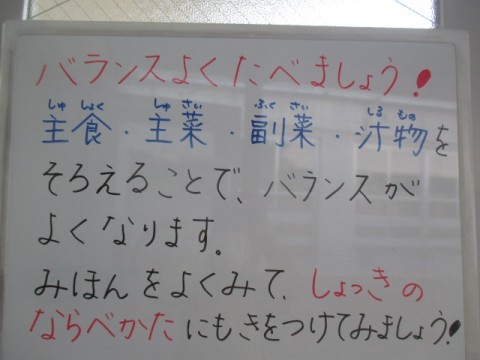 バランスよくたべましょう!
しゅ しょく しゅ さい ふく さい しる もの
主食・主菜・副菜・汁物を
そろえることで、バランスが
よくなります。
みほんをよくみて、しょっきの
ならべかたにもきをつけてみましょう!